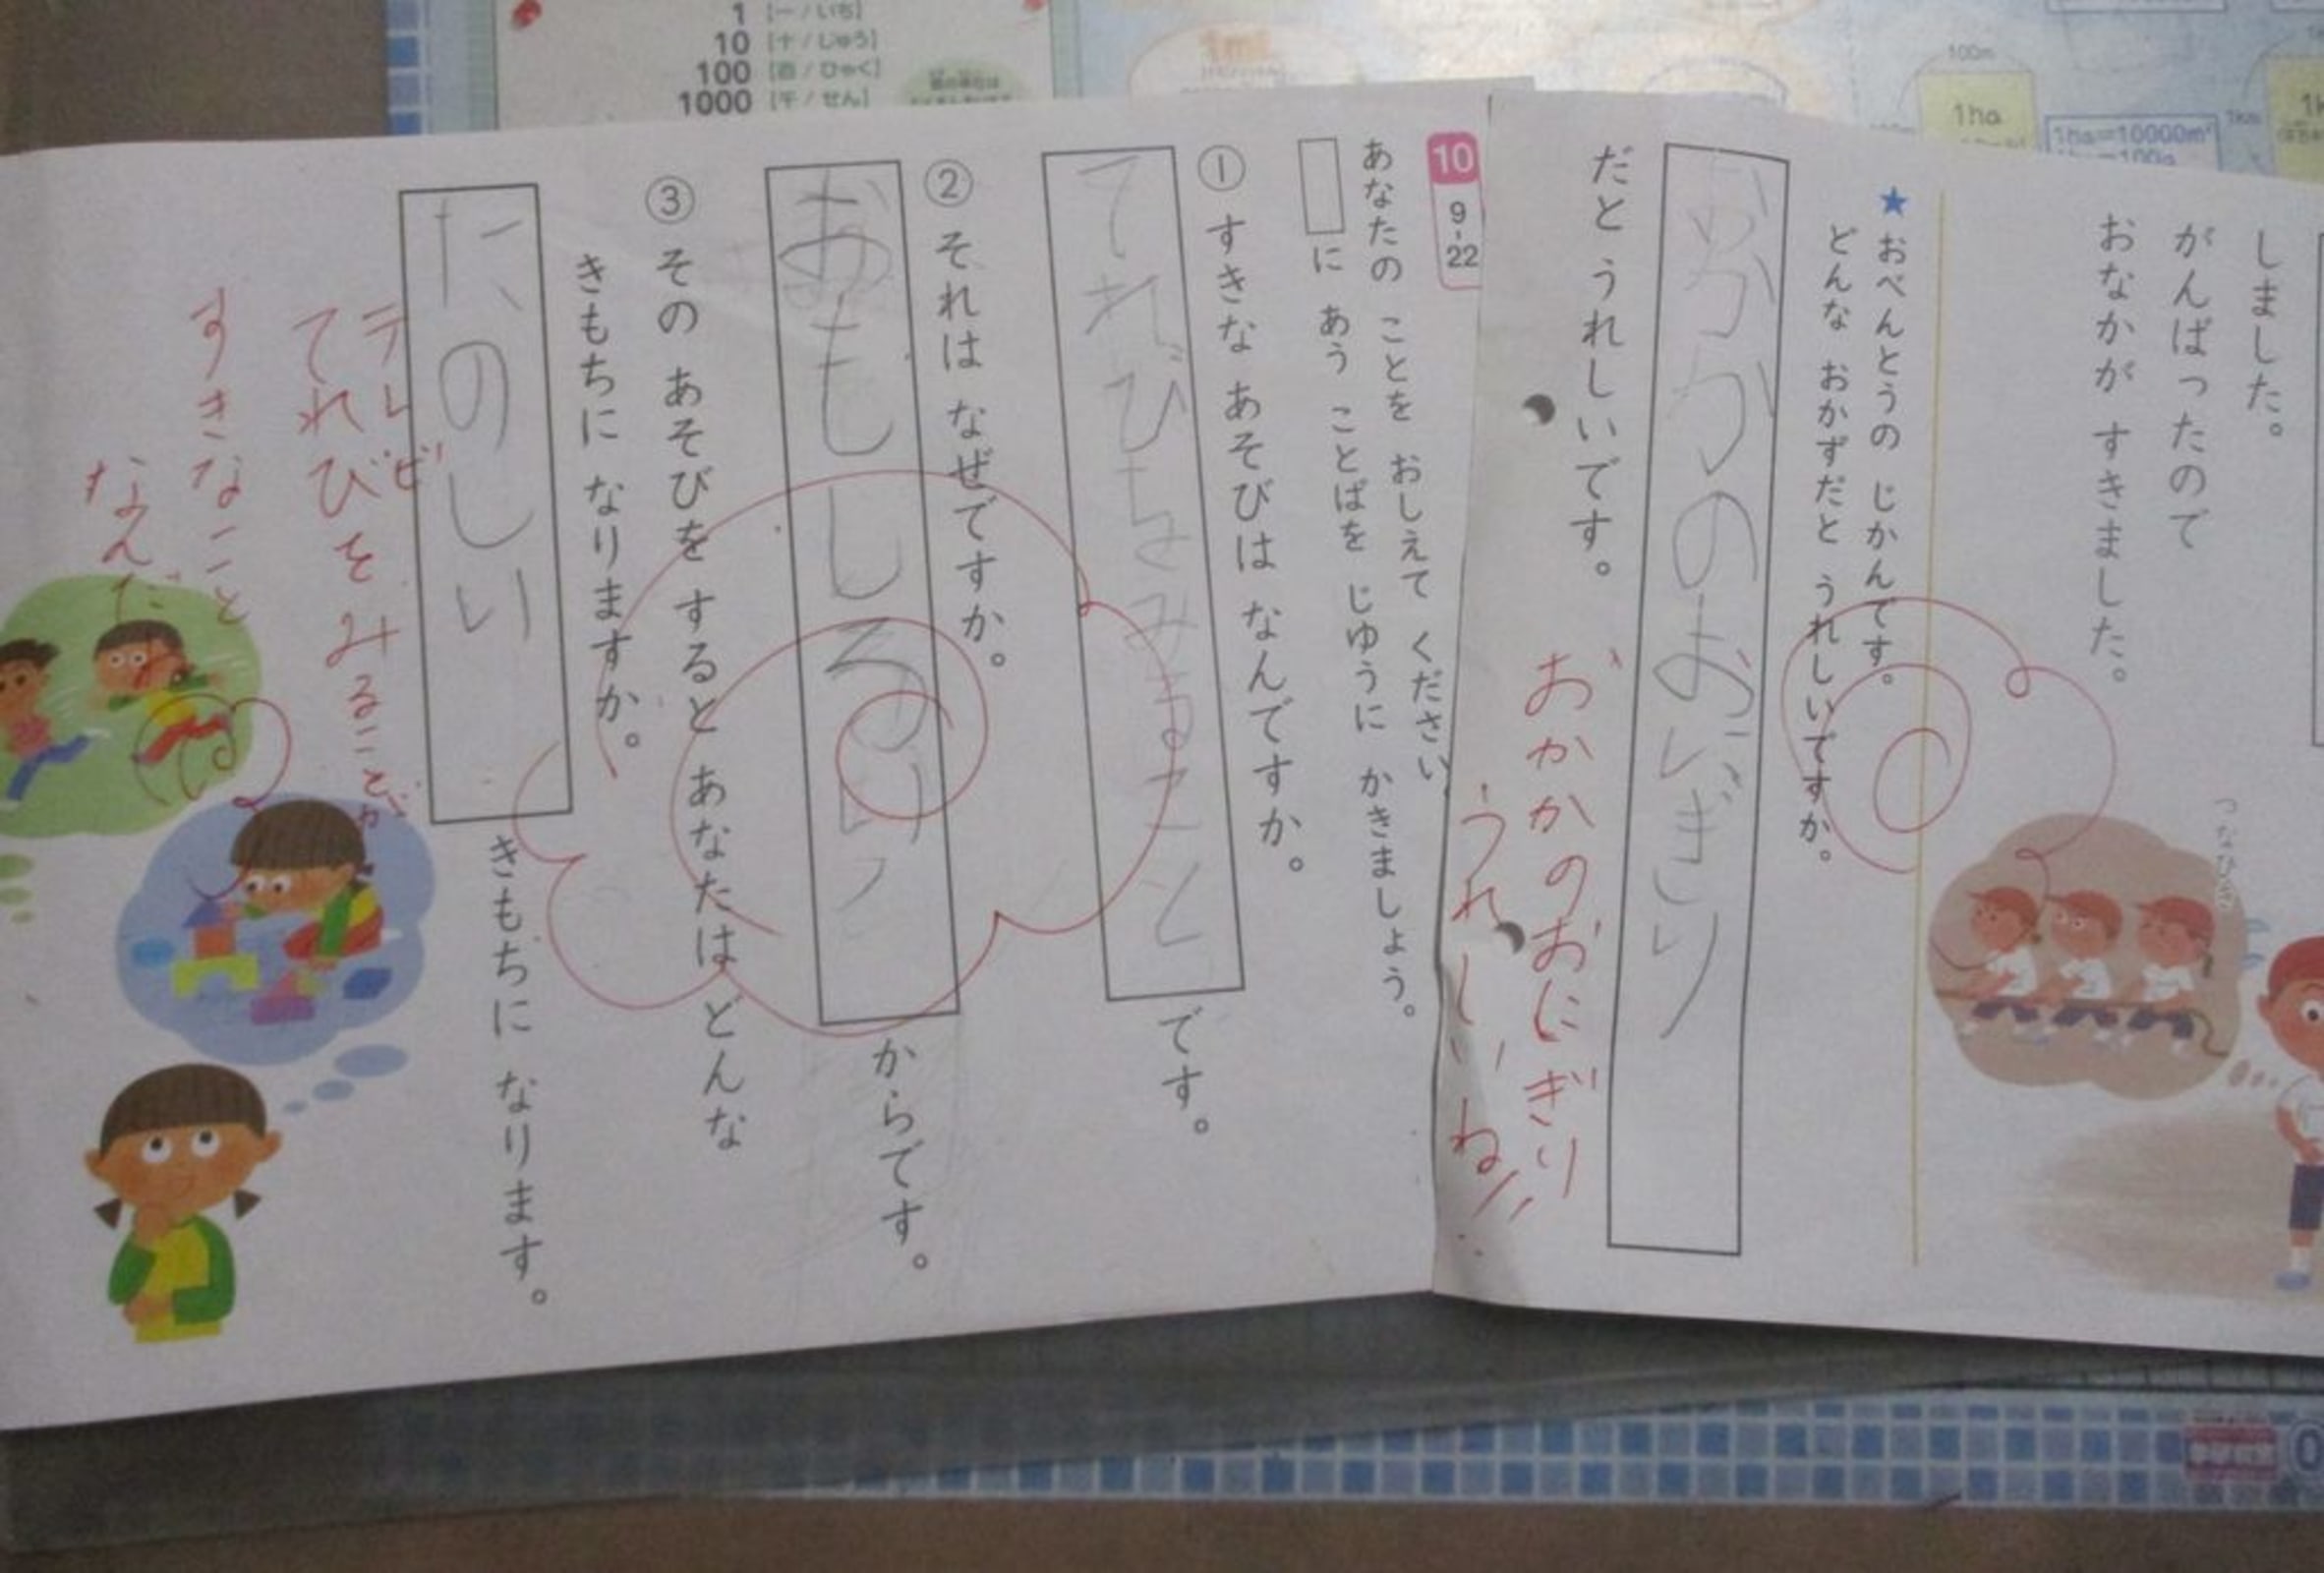 1 [一/いち]
10 [十/じゅう]
100 [百/ひゃく]
1000 [千/せん]
1mL
100m
1ha
1ha=10000m²
しました。
がんばったので
おなかが すきました。
つなひき
★おべんとうの じかんです。
どんな おかずだと うれしいですか。
おかかのおにぎり
だと うれしいです。
おかかのおにぎり
うれしいね!!
10
9-22
あなたの ことを おしえて ください。
に あう ことばを じゆうに かきましょう。
① すきな あそびは なんですか。
てれびをみること
です。
② それは なぜですか。
おもしろい
からです。
③ その あそびを すると あなたは どんな
きもちに なりますか。
たのしい
きもちに なります。
テレビ
てれびを みることが
すきなこと
なんだ